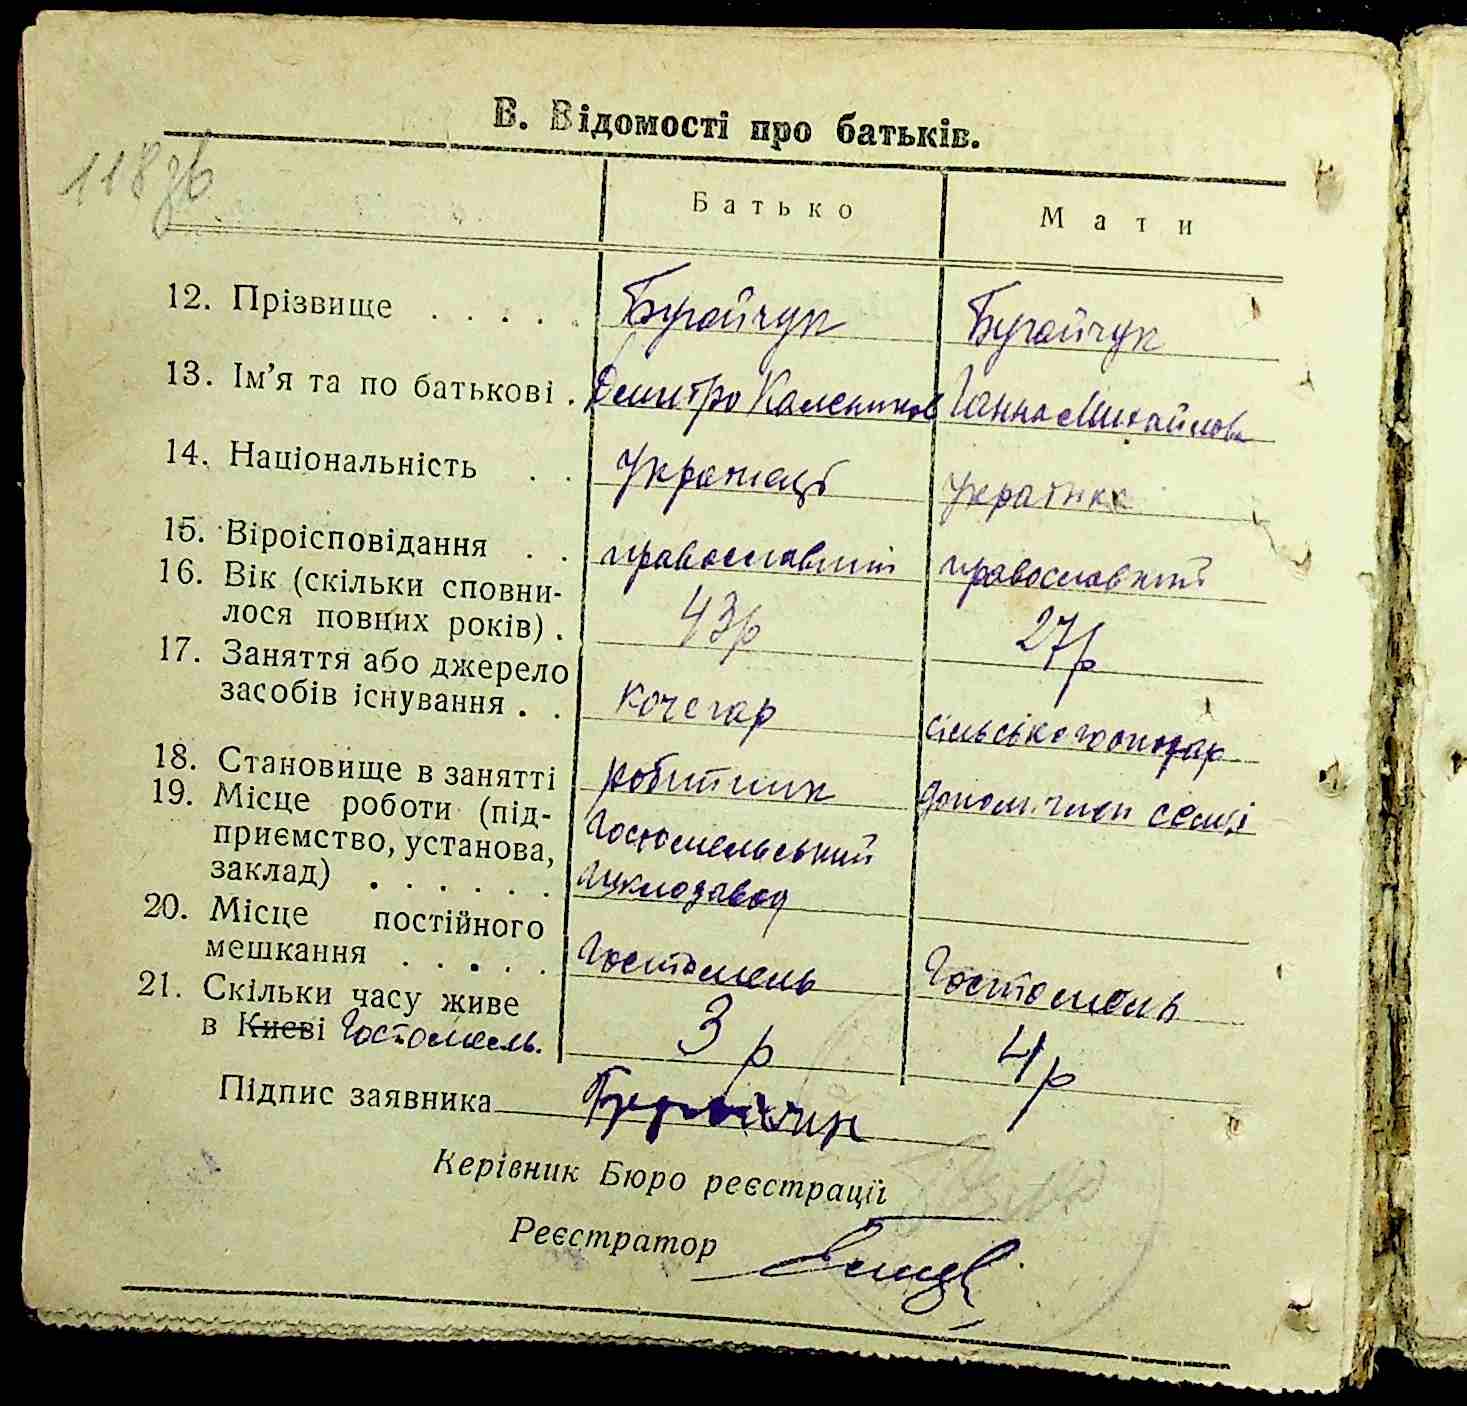 В. Відомості про батьків.
118зв
Батько Мати
12. Прізвище Бугайчук Бугайчук
13. Ім’я та по батькові Дмитро Каленików Ганна Михайлова
14. Національність українці українка
15. Віроісповідання православний православний
16. Вік (скільки сповни-
лося повних років) 43р 27р
17. Заняття або джерело
засобів існування кочегар сільське господар
18. Становище в занятті робітник допомагає семʼї
19. Місце роботи (під-
приємство, установа,
заклад) Гостомельський
склозавод
20. Місце постійного
мешкання Гостомель Гостомель
21. Скільки часу живе
в Києві Гостомель. 3 р 4 р
Підпис заявника Бугайчук
Керівник Бюро реєстрації
Реєстратор